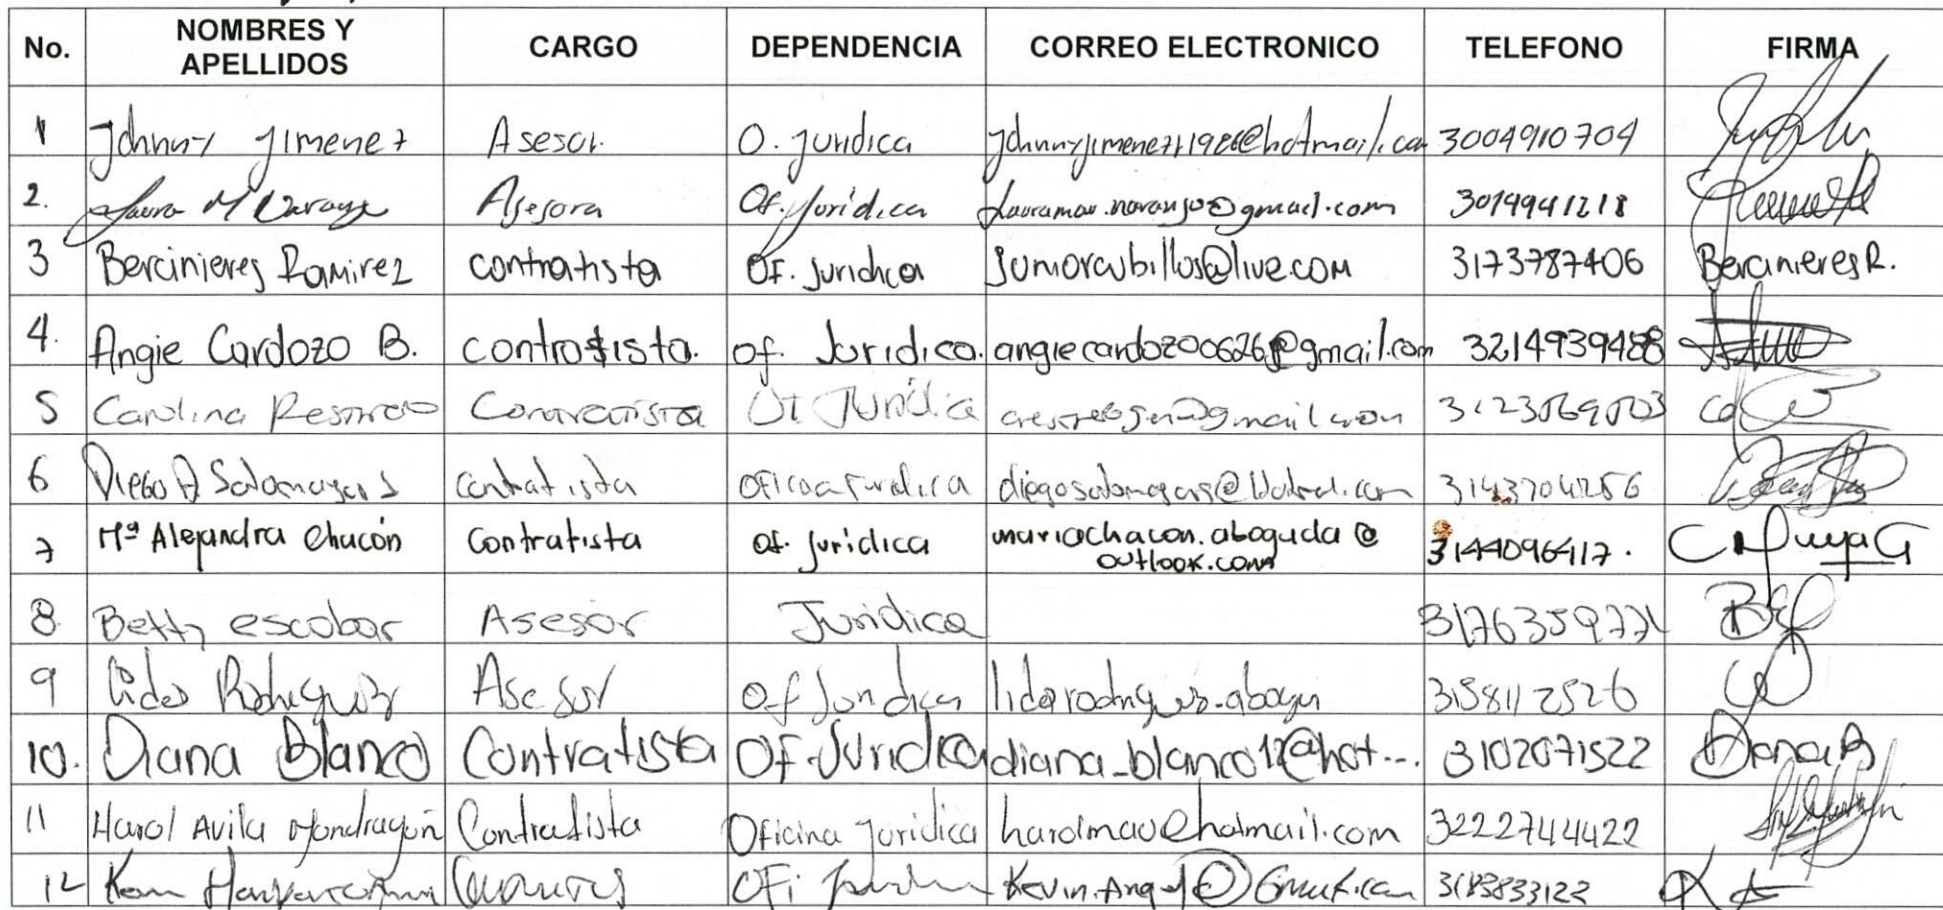 No. NOMBRES Y APELLIDOS CARGO DEPENDENCIA CORREO ELECTRONICO TELEFONO FIRMA
1 Johnny Jimenez Asesor. O. Juridica 3004910704
2. Laura M Naranjo Asesora Of. Jurídica lauramar.naranjo@gmail.com 3014941218
3 Bercinieres Ramirez contratista OF. Juridica juniorcubillos@live.com 3173787406 Bercinieres R.
4. Angie Cardozo B. contratista. of. Juridica. angiecardozo0626@gmail.com 3214939488
5 Carolina Restrepo Contratista Of Jurídica
6 Diego A Salamanca S Contratista Oficina Juridica
7 Mª Alejandra Chacón Contratista Of. Jurídica mariachacon.abogada@
outlook.com 3144096417.
8 Betty escobar Asesor Juridica
9 Rodriguez Asesor Of Juridica 3158112526
10. Diana Blanco Contratista Of. Juridica diana_blanco12@hot... 3102071522 Diana B
11 Harol Avila Mondragón Contratista Oficina Juridica harolmav@hotmail.com 3222744422
12 Ofi 3183833122